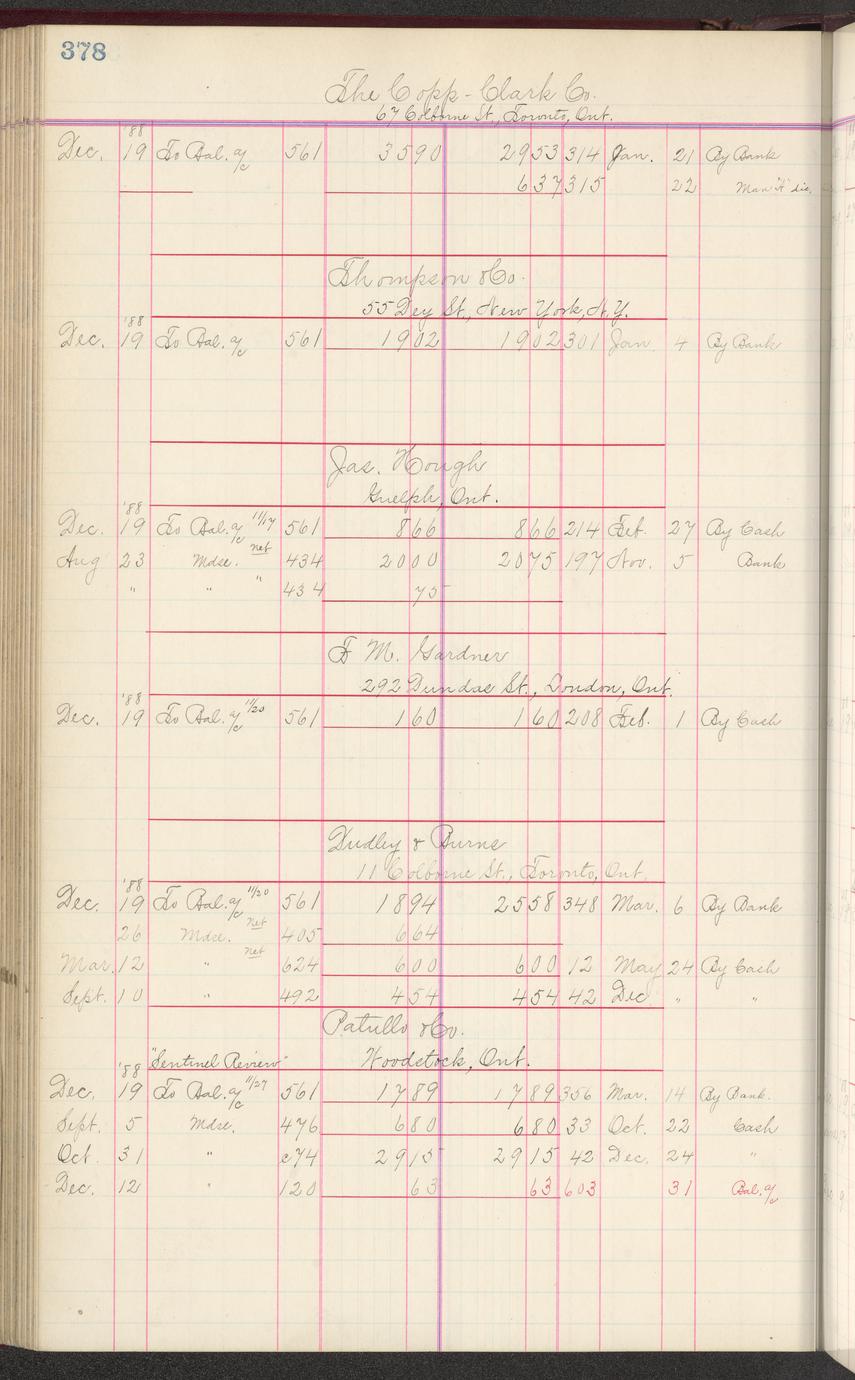 378
The Copp-Clark Co.
67 Colborne St., Toronto, Ont.
'88
Dec. 19 To Bal. a/c 561 3590 2953 314 Jan. 21 By Bank
637 315 22 Man "H" dis.
Thompson & Co.
55 Dey St., New York, N.Y.
'88
Dec. 19 To Bal. a/c 561 1902 1902 301 Jan. 4 By Bank
Jas. Hough
Guelph, Ont.
'88
Dec. 19 To Bal. a/c 11/17 561 866 866 214 Feb. 27 By Cash
Aug 23 Mdse. net 434 2000 2075 197 Nov. 5 Bank
" " " 434 75
F M. Gardner
292 Dundas St., London, Ont.
'88
Dec. 19 To Bal. a/c 11/20 561 160 160 208 Feb. 1 By Cash
Dudley & Burns
11 Colborne St., Toronto, Ont.
'88
Dec. 19 To Bal. a/c 11/20 561 1894 2558 348 Mar. 6 By Bank
26 Mdse. net 405 664
Mar. 12 " net 624 600 600 12 May 24 By Cash
Sept. 10 " 492 454 454 42 Dec. " "
Patullo & Co.
"Sentinel Review" Woodstock, Ont.
'88
Dec. 19 To Bal. a/c 11/27 561 1789 1789 356 Mar. 14 By Bank.
Sept. 5 Mdse. 476 680 680 33 Oct. 22 Cash
Oct. 31 " c74 2915 2915 42 Dec. 24 "
Dec. 12 " 120 63 63 603 31 Bal. a/c